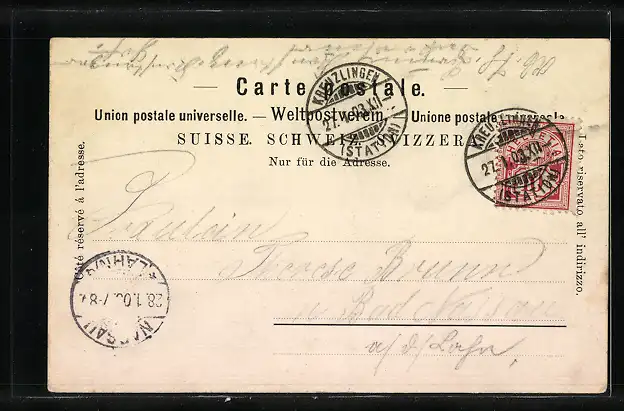 Carte postale.
Union postale universelle. — Weltpostverein. — Unione postale universale.
SUISSE. SCHWEIZ. SVIZZERA.
Nur für die Adresse.
Côté réservé à l'adresse.
Lato riservato all' indirizzo.
KREUZLINGEN
27.I.03.XII
(STATION)
KREUZLINGEN
27.I.03.XII
(STATION)
10
Fräulein
Therese Brunn
in Bad Nassau
a/d/Lahn.
NASSAU
28.1.03. 7-8
* (LAHN) *